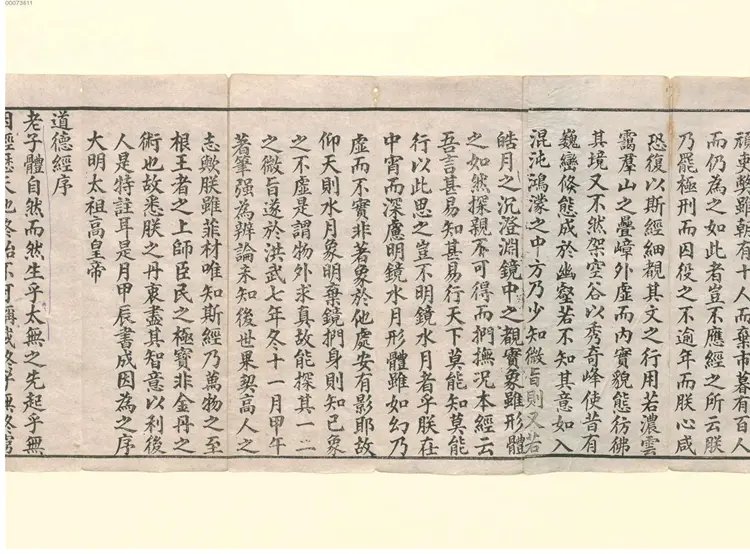 00073611
頑吏弊雖朝有十人而棄市暮有百人
而仍為之如此者豈不應經之所云朕
乃罷極刑而囚役之不逾年而朕心咸
恐復以斯經細覩其文之行用若濃雲
靄羣山之疊嶂外虛而內實貌態彷彿
其境又不然架空谷以秀奇峰使昔有
巍巒倐態成於幽壑若不知其意如入
混沌鴻濛之中方乃少知微旨則又若
皓月之沉澄淵鏡中之覩實象雖形體
之如然探親不可得而捫撫況本經云
吾言甚易知甚易行天下莫能知莫能
行以此思之豈不明鏡水月者乎朕在
中宵而深慮明鏡水月形體雖如幻乃
虛而不實非著象於他處安有影耶故
仰天則水月象明棄鏡捫身則知己象
之不虛是謂物外求真故能探其一二
之微旨遂於洪武七年冬十一月甲午
著筆強為辨論未知後世果契高人之
志歟朕雖菲材唯知斯經乃萬物之至
根王者之上師臣民之極寶非金丹之
術也故悉朕之丹衷盡其智意以利後
人是特註耳是月甲辰書成因為之序
大明太祖高皇帝
道德經序
老子體自然而然生乎太無之先起乎無
因經歷天地終始不可稱載終乎無終窮